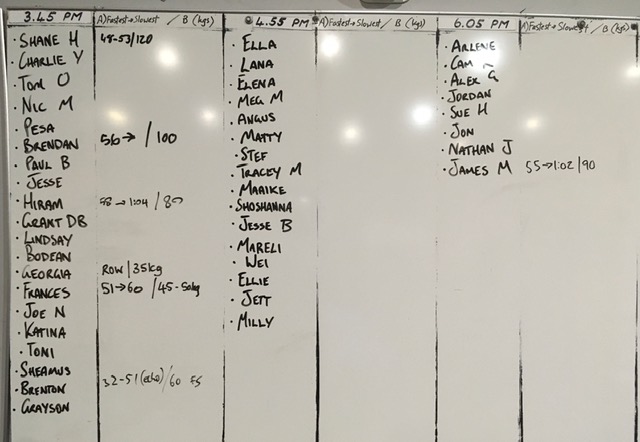 3.45 PM A) Fastest→Slowest / B (kgs)
· SHANE H 48-53/120
· CHARLIE Y
· TOM O
· NIC M
· PESA
· BRENDAN 56→ / 100
· PAUL B
· JESSE
· HIRAM →1:04 / 80
· GRANT DB
· LINDSAY
· BODEAN
· GEORGIA ROW / 35kg
· FRANCES 51→60 / 45-50kg
· JOE N
· KATINA
· TONI
· SHEAMUS
· BRENTON 32-51 (echo) / 60 FS
· GRAYSON
4.55 PM A) Fastest→Slowest / B (kgs)
· ELLA
· LANA
· ELENA
· MEG M
· ANGUS
· MATTY
· STEF
· TRACEY M
· MARIKE
· SHOSHANNA
· JESSE B
· MARELI
· WEI
· ELLIE
· JETT
· MILLY
6.05 PM A) Fastest→Slowest / B (kgs)
· ARLENE
· CAM
· ALEX G
· JORDAN
· SUE H
· JON
· NATHAN J
· JAMES M 55→1:02/90